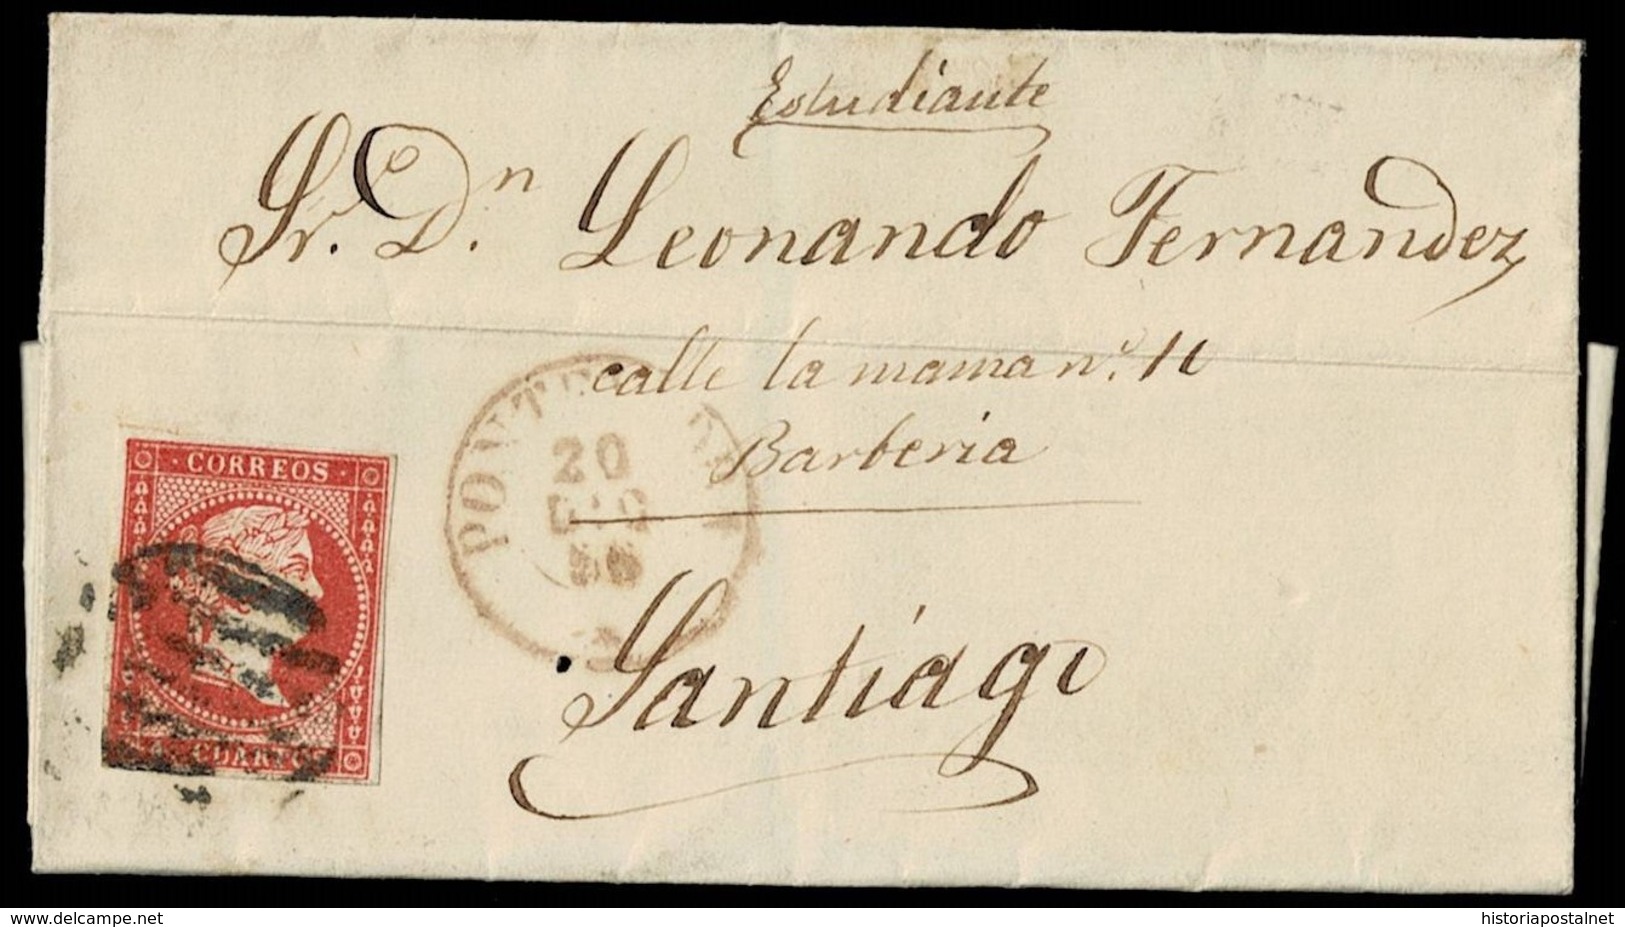 Estudiante
Sr. Dn. Leonando Fernandez
calle la mama nº. 11
Barberia
20
DIC
56
CORREOS
4 CUARTOS
Santiago
www.delcampe.net
historiapostalnet